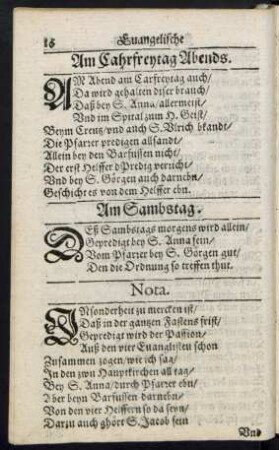 16 Euangelische
Am Carfreytag Abends.
AM Abend am Carfreytag auch/
Da wird gehalten diser brauch/
Daß bey S. Anna/ allermeist/
Vnd im Spital zum H. Geist/
Beym Creutz/ vnd auch S. Vlrich bkandt/
Die Pfarrer predigen allsandt/
Allein bey den Barfussen nicht/
Der erst Helffer dPredig verricht/
Vnd bey S. Görgen auch darnebn/
Geschicht es von dem Helffer ebn.
Am Sambstag.
DEß Sambstags morgens wird allein/
Gepredigt bey S. Anna fein/
Vom Pfarrer bey S. Görgen gut/
Den die Ordnung so treffen thut.
Nota.
INsonderheit zu mercken ist/
Daß in der gantzen Fastens frist/
Gepredigt wird der Passion/
Auß den vier Euanglisten schon
Zusammen zogen/ wie ich sag/
In den zwn Hauptkirchen all tag/
Bey S. Anna/ durch Pfarrer ebn/
Aber beyn Barfussen darnebn/
Von den vier Helffern so da seyn/
Darzu auch ghört S. Jacob fein
Vnd